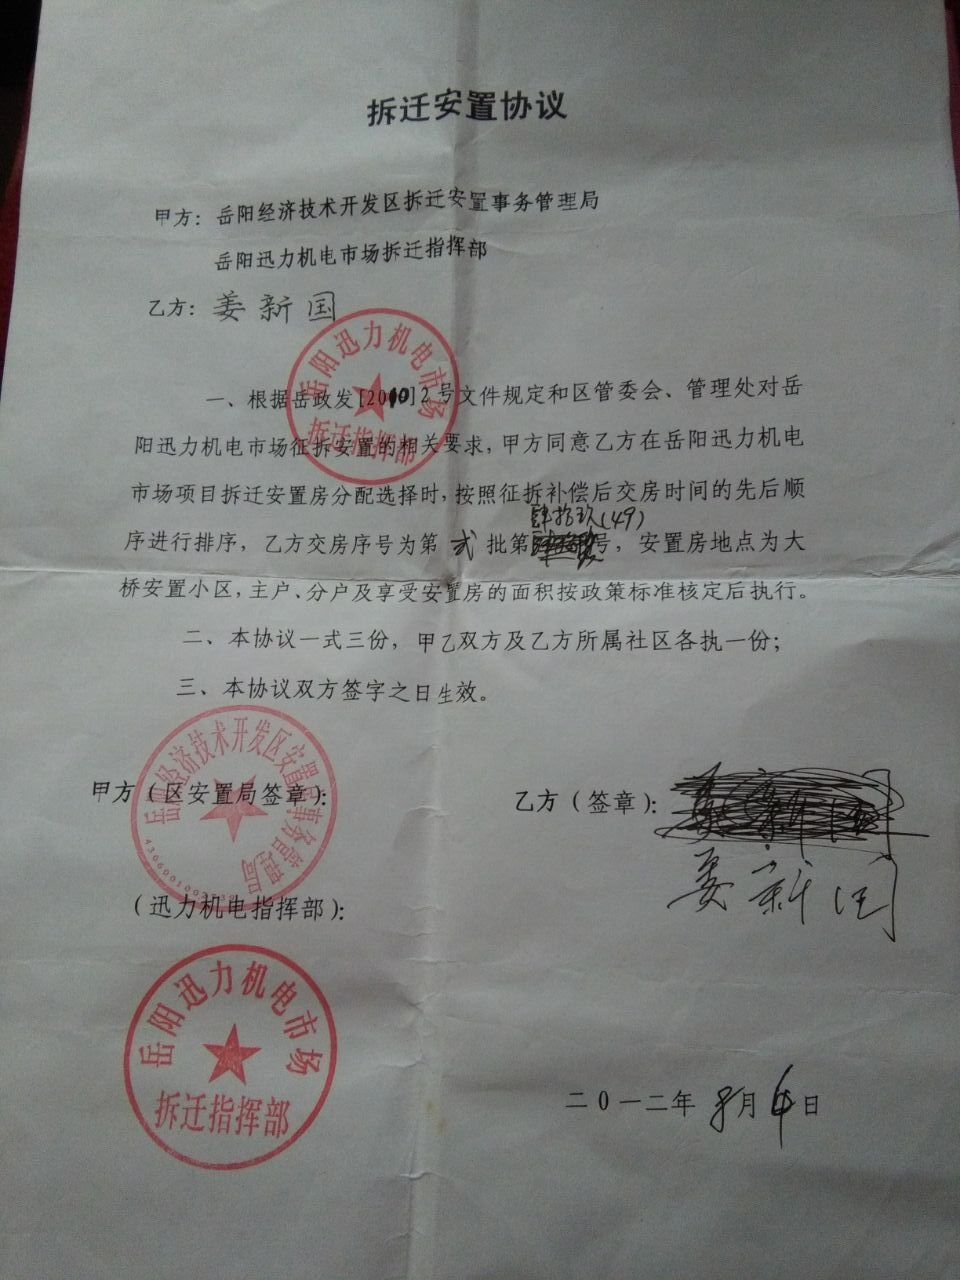 拆迁安置协议
甲方：岳阳经济技术开发区拆迁安置事务管理局
岳阳迅力机电市场拆迁指挥部
乙方：姜新国
岳阳迅力机电市场
拆迁指挥部
一、根据岳政发[2010]2号文件规定和区管委会、管理处对岳
阳迅力机电市场征拆安置的相关要求，甲方同意乙方在岳阳迅力机电
市场项目拆迁安置房分配选择时，按照征拆补偿后交房时间的先后顺
肆拾玖(49)
序进行排序，乙方交房序号为第 贰 批第号，安置房地点为大
桥安置小区，主户、分户及享受安置房的面积按政策标准核定后执行。
二、本协议一式三份，甲乙双方及乙方所属社区各执一份；
三、本协议双方签字之日生效。
甲方（区安置局签章）：
乙方（签章）：
姜新国
（迅力机电指挥部）：
岳阳迅力机电市场
拆迁指挥部
二0一二年 月 日